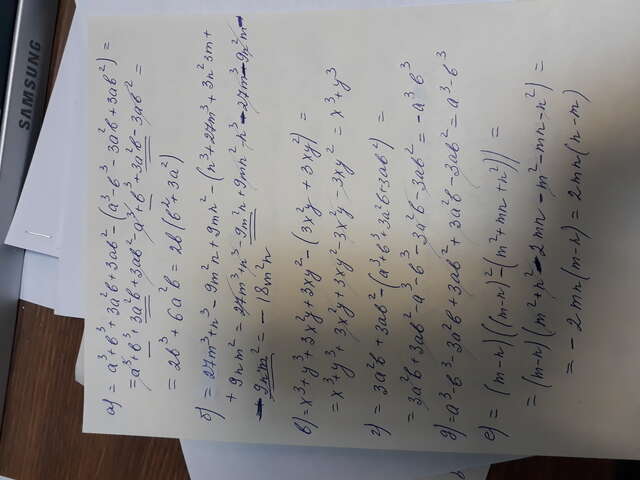 SAMSUNG
а) = a³+b³+3a²b+3ab²-(a³-b³-3a²b+3ab²)=
=a³+b³+3a²b+3ab²-a³+b³+3a²b-3ab²=
= 2b³+6a²b = 2b(b²+3a²)
б) = 27m³+n³-9m²n+9mn²-(n³+27m³+3n²3m+
+9nm² = 27m³+n³-9m²n+9mn²-n³-27m³-9n²m-
-9nm² = -18m²n
в) = x³+y³+3x²y+3xy²-(3x²y+3xy²) =
= x³+y³+3x²y+3xy²-3x²y-3xy² = x³+y³
г) = 3a²b+3ab²-(a³+b³+3a²b+3ab²) =
= 3a²b+3ab²-a³-b³-3a²b-3ab² = -a³ b³
д) =a³-b³-3a²b+3ab²+3a²b-3ab²=a³-b³
е) = (m-n)((m-n)²-(m²+mn+n²)) =
= (m-n)(m²+n²-2mn-m²-mn-n²) =
= -2mn(m-n) = 2mn(n-m)